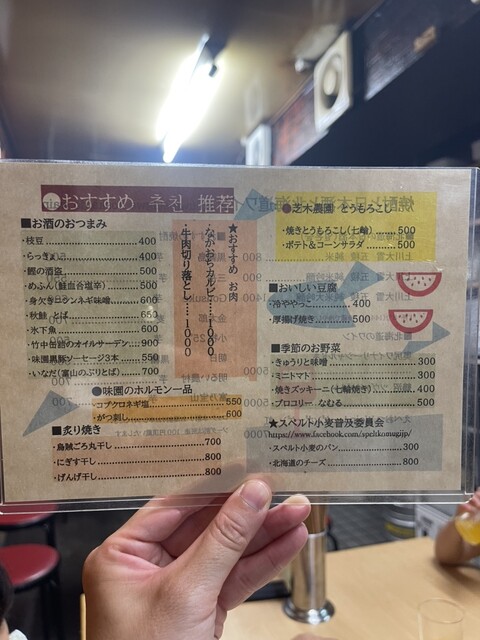 おすすめ 추천 推荐
■お酒のおつまみ
・枝豆 400
・らっきょ 400
・鰹の酒盗 500
・めふん(鮭血合塩辛) 500
・身欠きニシンネギ味噌 600
・秋鮭 とば 650
・氷下魚 600
・竹中缶詰のオイルサーデン 900
・味園黒豚ソーセージ3本 550
・いなだ(富山のぶりとば) 700
●味園のホルモン一品
・コブクロネギ塩 550
・がつ刺し 600
■炙り焼き
・烏賊ごろ丸干し 700
・にぎす干し 800
・げんげ干し 800
★おすすめ お肉
・なかおちカルビ 1000
・牛肉切り落とし 1000
●芝木農園 とうもろこし
・焼きとうもろこし(七輪) 500
・ポテト&コーンサラダ 500
■おいしい豆腐
・冷ややっこ 400
・厚揚げ焼き 500
■季節のお野菜
・きゅうりと味噌 300
・ミニトマト 300
・焼きズッキーニ(七輪焼き) 400
・ブロッコリー なむる 500
★スペルト小麦普及委員会
https://www.facebook.com/speltkomugijp/
・スペルト小麦のパン 300
・北海道のチーズ 800